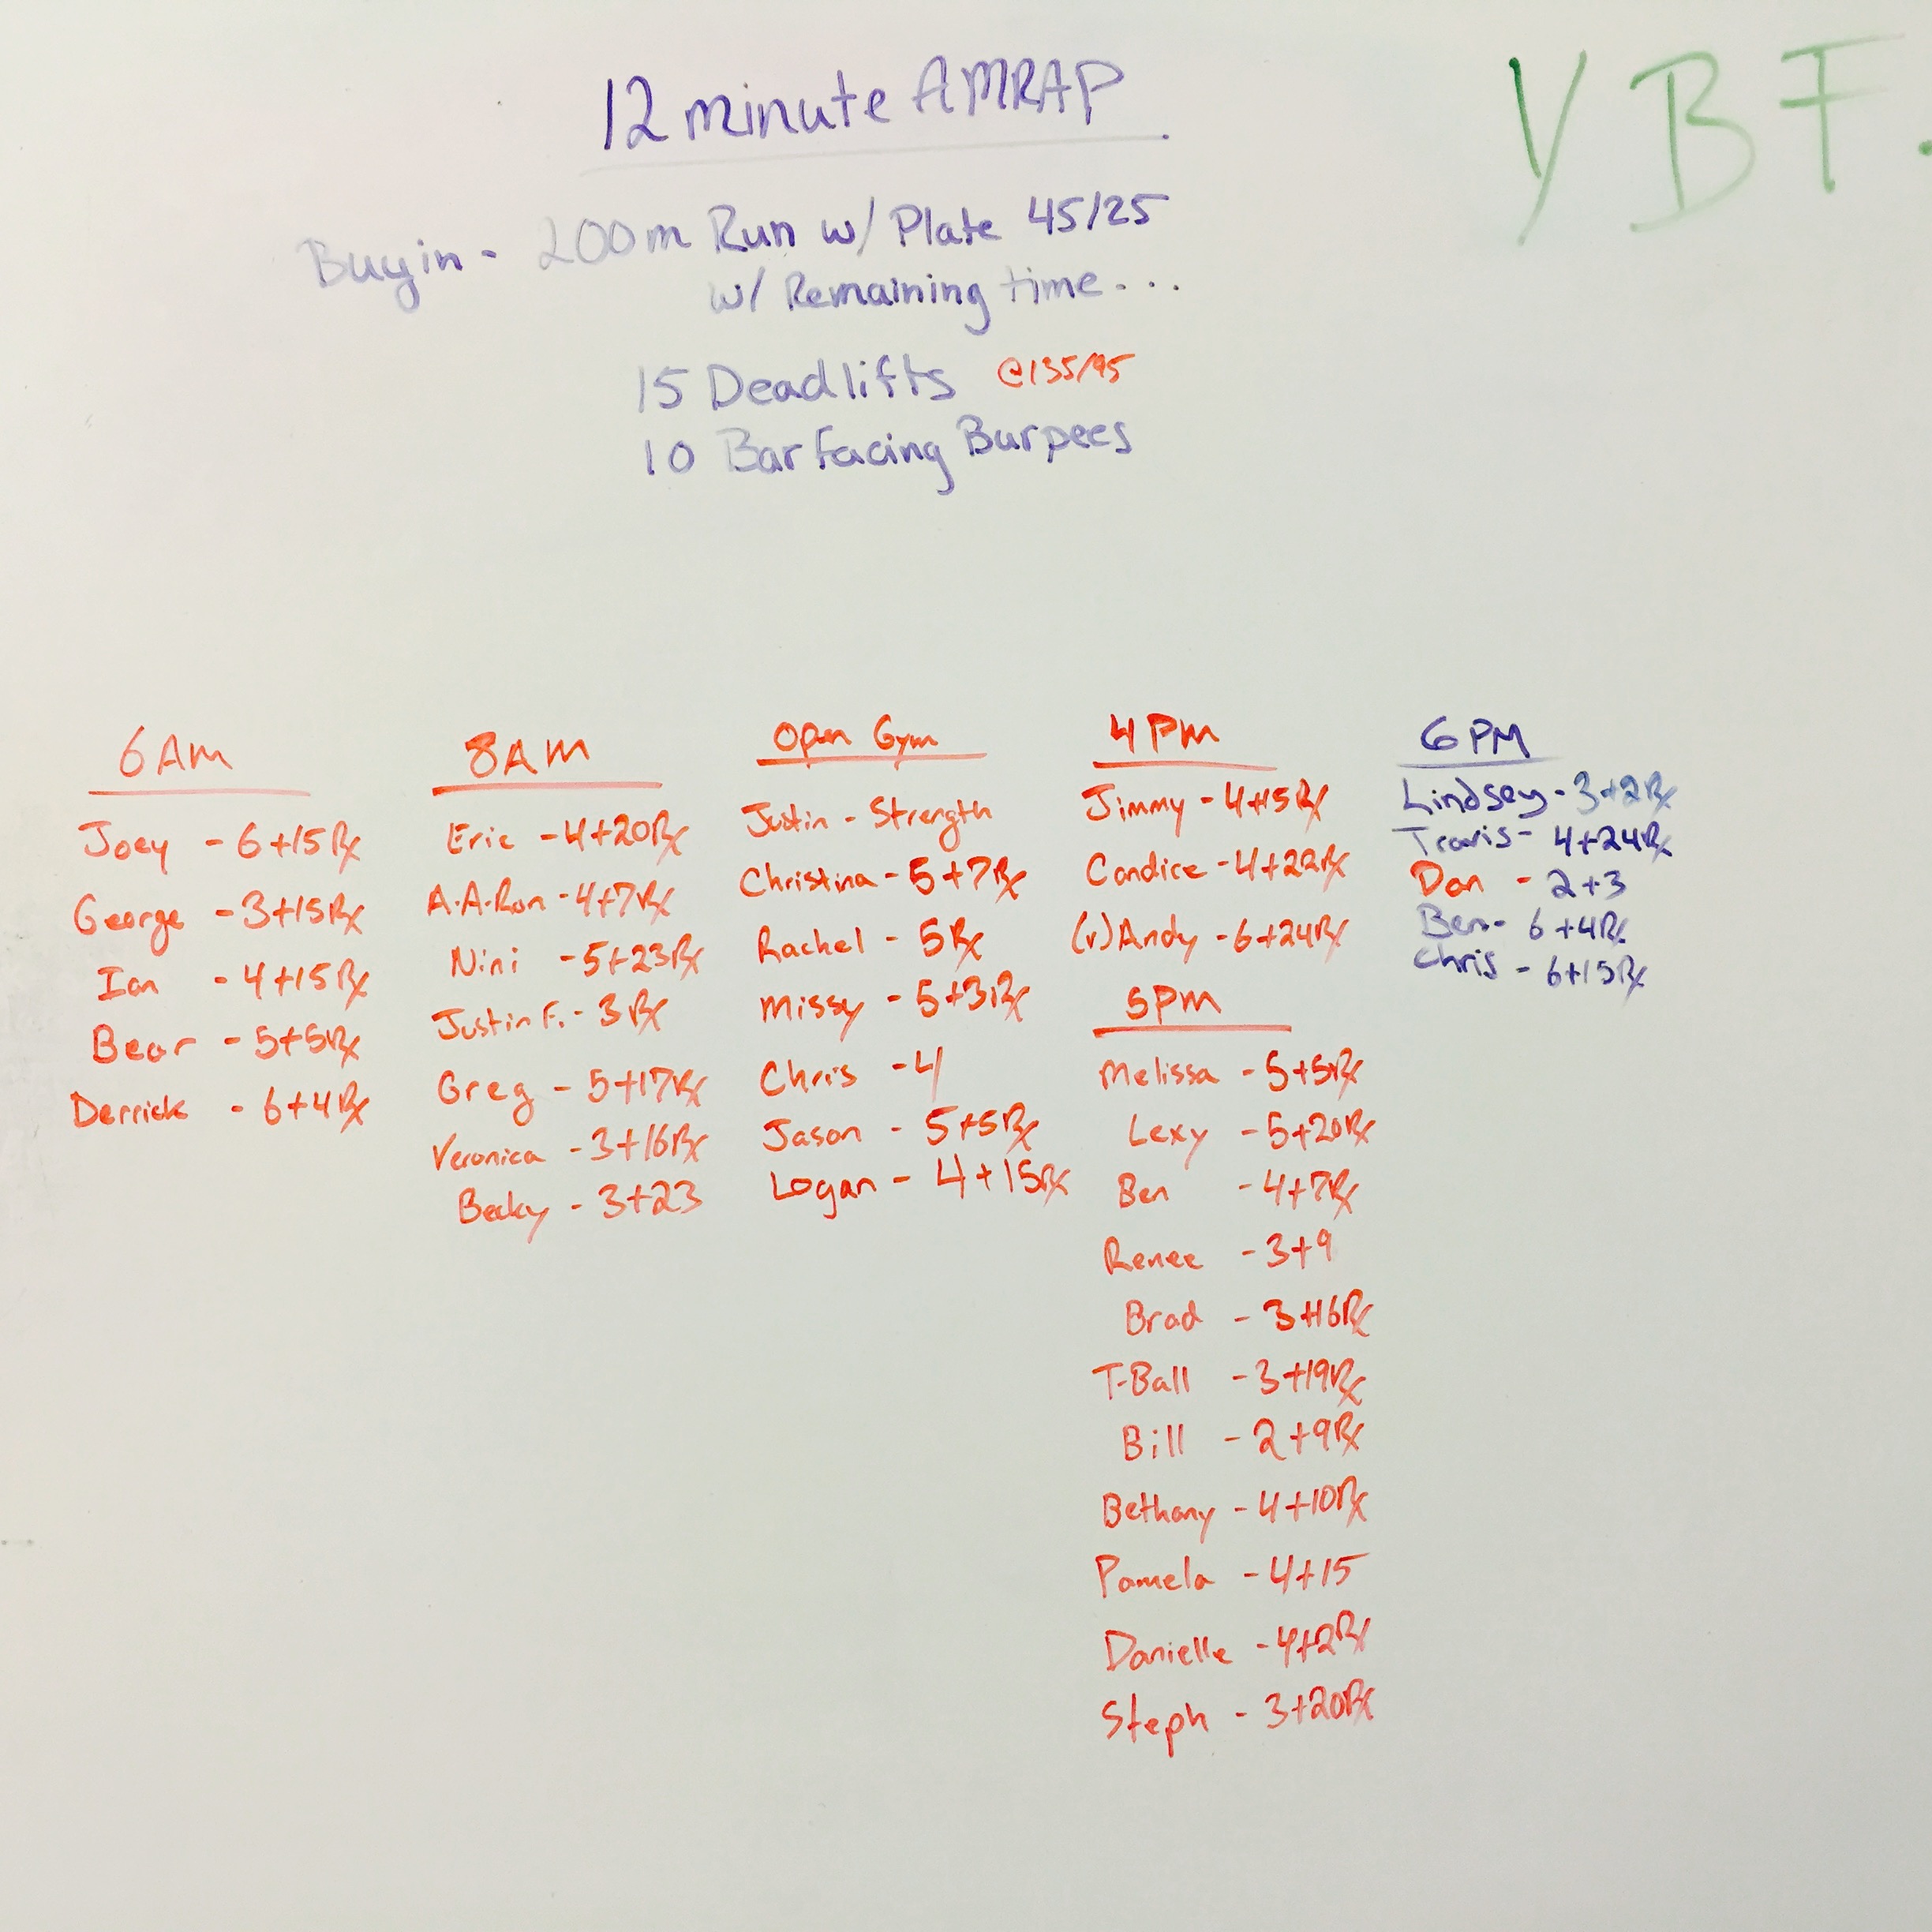 12 minute AMRAP
YBF.
Buyin - 200m Run w/ Plate 45/25
w/ Remaining time...
15 Deadlifts @135/95
10 Bar Facing Burpees
6AM
Joey - 6+15Rx
George - 3+15Rx
Ian - 4+15Rx
Bear - 5+5Rx
Derrick - 6+4Rx
8AM
Eric - 4+20Rx
A.A.Ron - 4+7Rx
Nini - 5+23Rx
Justin F. - 3Rx
Greg - 5+17Rx
Veronica - 3+16Rx
Becky - 3+23
Open Gym
Justin - Strength
Christina - 5+7Rx
Rachel - 5Rx
Missy - 5+3Rx
Chris - 4
Jason - 5+5Rx
Logan - 4+15Rx
4PM
Jimmy - 4+15Rx
Candice - 4+22Rx
(v)Andy - 6+24Rx
5PM
Melissa - 5+5Rx
Lexy - 5+20Rx
Ben - 4+7Rx
Renee - 3+9
Brad - 3+16Rx
T-Ball - 3+19Rx
Bill - 2+9Rx
Bethany - 4+10Rx
Pamela - 4+15
Danielle - 4+2Rx
Steph - 3+20Rx
6PM
Lindsey - 3+2Rx
Travis - 4+24Rx
Dan - 2+3
Ben - 6+4Rx
Chris - 6+15Rx